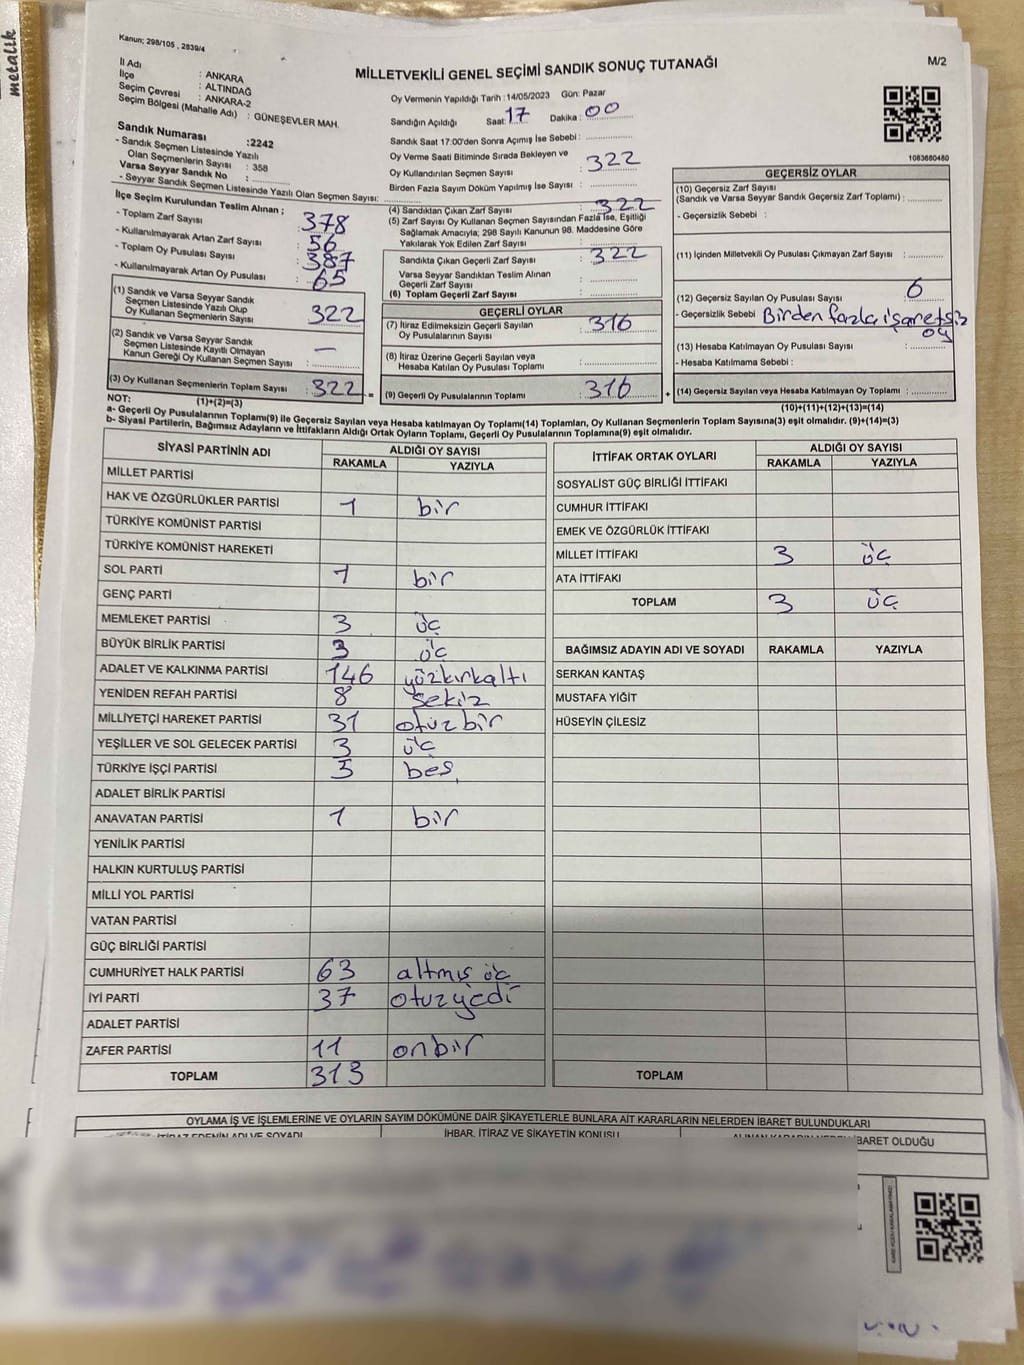 metalik
Kanun; 298/105 , 2839/4
İl Adı : ANKARA
İlçe : ALTINDAĞ
Seçim Çevresi : ANKARA-2
Seçim Bölgesi (Mahalle Adı) : GÜNEŞEVLER MAH.
MİLLETVEKİLİ GENEL SEÇİMİ SANDIK SONUÇ TUTANAĞI
M/2
Oy Vermenin Yapıldığı Tarih :14/05/2023 Gün: Pazar
Sandığın Açıldığı Saat: 17 Dakika : 00
Sandık Saat 17:00'den Sonra Açımış İse Sebebi :
Oy Verme Saati Bitiminde Sırada Bekleyen ve
Oy Kullandırılan Seçmen Sayısı : 322
Birden Fazla Sayım Döküm Yapılmış İse Sayısı :
1083680480
Sandık Numarası :2242
- Sandık Seçmen Listesinde Yazılı
Olan Seçmenlerin Sayısı : 358
Varsa Seyyar Sandık No :
- Seyyar Sandık Seçmen Listesinde Yazılı Olan Seçmen Sayısı:
İlçe Seçim Kurulundan Teslim Alınan ;
- Toplam Zarf Sayısı : 378
- Kullanılmayarak Artan Zarf Sayısı : 56
- Toplam Oy Pusulası Sayısı : 387
- Kullanılmayarak Artan Oy Pusulası : 65
(1) Sandık ve Varsa Seyyar Sandık
Seçmen Listesinde Yazılı Olup
Oy Kullanan Seçmenlerin Sayısı : 322
(2) Sandık ve Varsa Seyyar Sandık
Seçmen Listesinde Kayıtlı Olmayan
Kanun Gereği Oy Kullanan Seçmen Sayısı : —
(3) Oy Kullanan Seçmenlerin Toplam Sayısı : 322 =
(1)+(2)=(3)
(4) Sandıktan Çıkan Zarf Sayısı : 322
(5) Zarf Sayısı Oy Kullanan Seçmen Sayısından Fazla İse, Eşitliği
Sağlamak Amacıyla; 298 Sayılı Kanunun 98. Maddesine Göre
Yakılarak Yok Edilen Zarf Sayısı :
Sandıkta Çıkan Geçerli Zarf Sayısı : 322
Varsa Seyyar Sandıktan Teslim Alınan
Geçerli Zarf Sayısı :
(6) Toplam Geçerli Zarf Sayısı :
GEÇERLİ OYLAR
(7) İtiraz Edilmeksizin Geçerli Sayılan
Oy Pusulalarının Sayısı : 316
(8) İtiraz Üzerine Geçerli Sayılan veya
Hesaba Katılan Oy Pusulası Toplamı :
(9) Geçerli Oy Pusulalarının Toplamı : 316 +
GEÇERSİZ OYLAR
(10) Geçersiz Zarf Sayısı
(Sandık ve Varsa Seyyar Sandık Geçersiz Zarf Toplamı) :
- Geçersizlik Sebebi :
(11) İçinden Milletvekili Oy Pusulası Çıkmayan Zarf Sayısı :
(12) Geçersiz Sayılan Oy Pusulası Sayısı : 6
- Geçersizlik Sebebi : Birden fazla işaretsiz
oy
(13) Hesaba Katılmayan Oy Pusulası Sayısı :
- Hesaba Katılmama Sebebi :
(14) Geçersiz Sayılan veya Hesaba Katılmayan Oy Toplamı :
(10)+(11)+(12)+(13)=(14)
NOT:
a- Geçerli Oy Pusulalarının Toplamı(9) ile Geçersiz Sayılan veya Hesaba katılmayan Oy Toplamı(14) Toplamları, Oy Kullanan Seçmenlerin Toplam Sayısına(3) eşit olmalıdır. (9)+(14)=(3)
b- Siyasi Partilerin, Bağımsız Adayların ve İttifakların Aldığı Ortak Oyların Toplamı, Geçerli Oy Pusulalarının Toplamına(9) eşit olmalıdır.
SİYASİ PARTİNİN ADI ALDIĞI OY SAYISI
RAKAMLA YAZIYLA
MİLLET PARTİSİ
HAK VE ÖZGÜRLÜKLER PARTİSİ 1 bir
TÜRKİYE KOMÜNİST PARTİSİ
TÜRKİYE KOMÜNİST HAREKETİ
SOL PARTİ 1 bir
GENÇ PARTİ
MEMLEKET PARTİSİ 3 üç
BÜYÜK BİRLİK PARTİSİ 3 üç
ADALET VE KALKINMA PARTİSİ 146 yüzkırkaltı
YENİDEN REFAH PARTİSİ 8 sekiz
MİLLİYETÇİ HAREKET PARTİSİ 31 otuzbir
YEŞİLLER VE SOL GELECEK PARTİSİ 3 üç
TÜRKİYE İŞÇİ PARTİSİ 5 beş
ADALET BİRLİK PARTİSİ
ANAVATAN PARTİSİ 1 bir
YENİLİK PARTİSİ
HALKIN KURTULUŞ PARTİSİ
MİLLİ YOL PARTİSİ
VATAN PARTİSİ
GÜÇ BİRLİĞİ PARTİSİ
CUMHURİYET HALK PARTİSİ 63 altmış üç
İYİ PARTİ 37 otuzyedi
ADALET PARTİSİ
ZAFER PARTİSİ 11 onbir
TOPLAM 313
İTTİFAK ORTAK OYLARI ALDIĞI OY SAYISI
RAKAMLA YAZIYLA
SOSYALİST GÜÇ BİRLİĞİ İTTİFAKI
CUMHUR İTTİFAKI
EMEK VE ÖZGÜRLÜK İTTİFAKI
MİLLET İTTİFAKI 3 üç
ATA İTTİFAKI
TOPLAM 3 üç
BAĞIMSIZ ADAYIN ADI VE SOYADI RAKAMLA YAZIYLA
SERKAN KANTAŞ
MUSTAFA YİĞİT
HÜSEYİN ÇİLESİZ
TOPLAM
OYLAMA İŞ VE İŞLEMLERİNE VE OYLARIN SAYIM DÖKÜMÜNE DAİR ŞİKAYETLERLE BUNLARA AİT KARARLARIN NELERDEN İBARET BULUNDUKLARI
İTİRAZ EDENİN ADI VE SOYADI İHBAR, İTİRAZ VE ŞİKAYETİN KONUSU ALINAN KARARIN NEDEN İBARET OLDUĞU